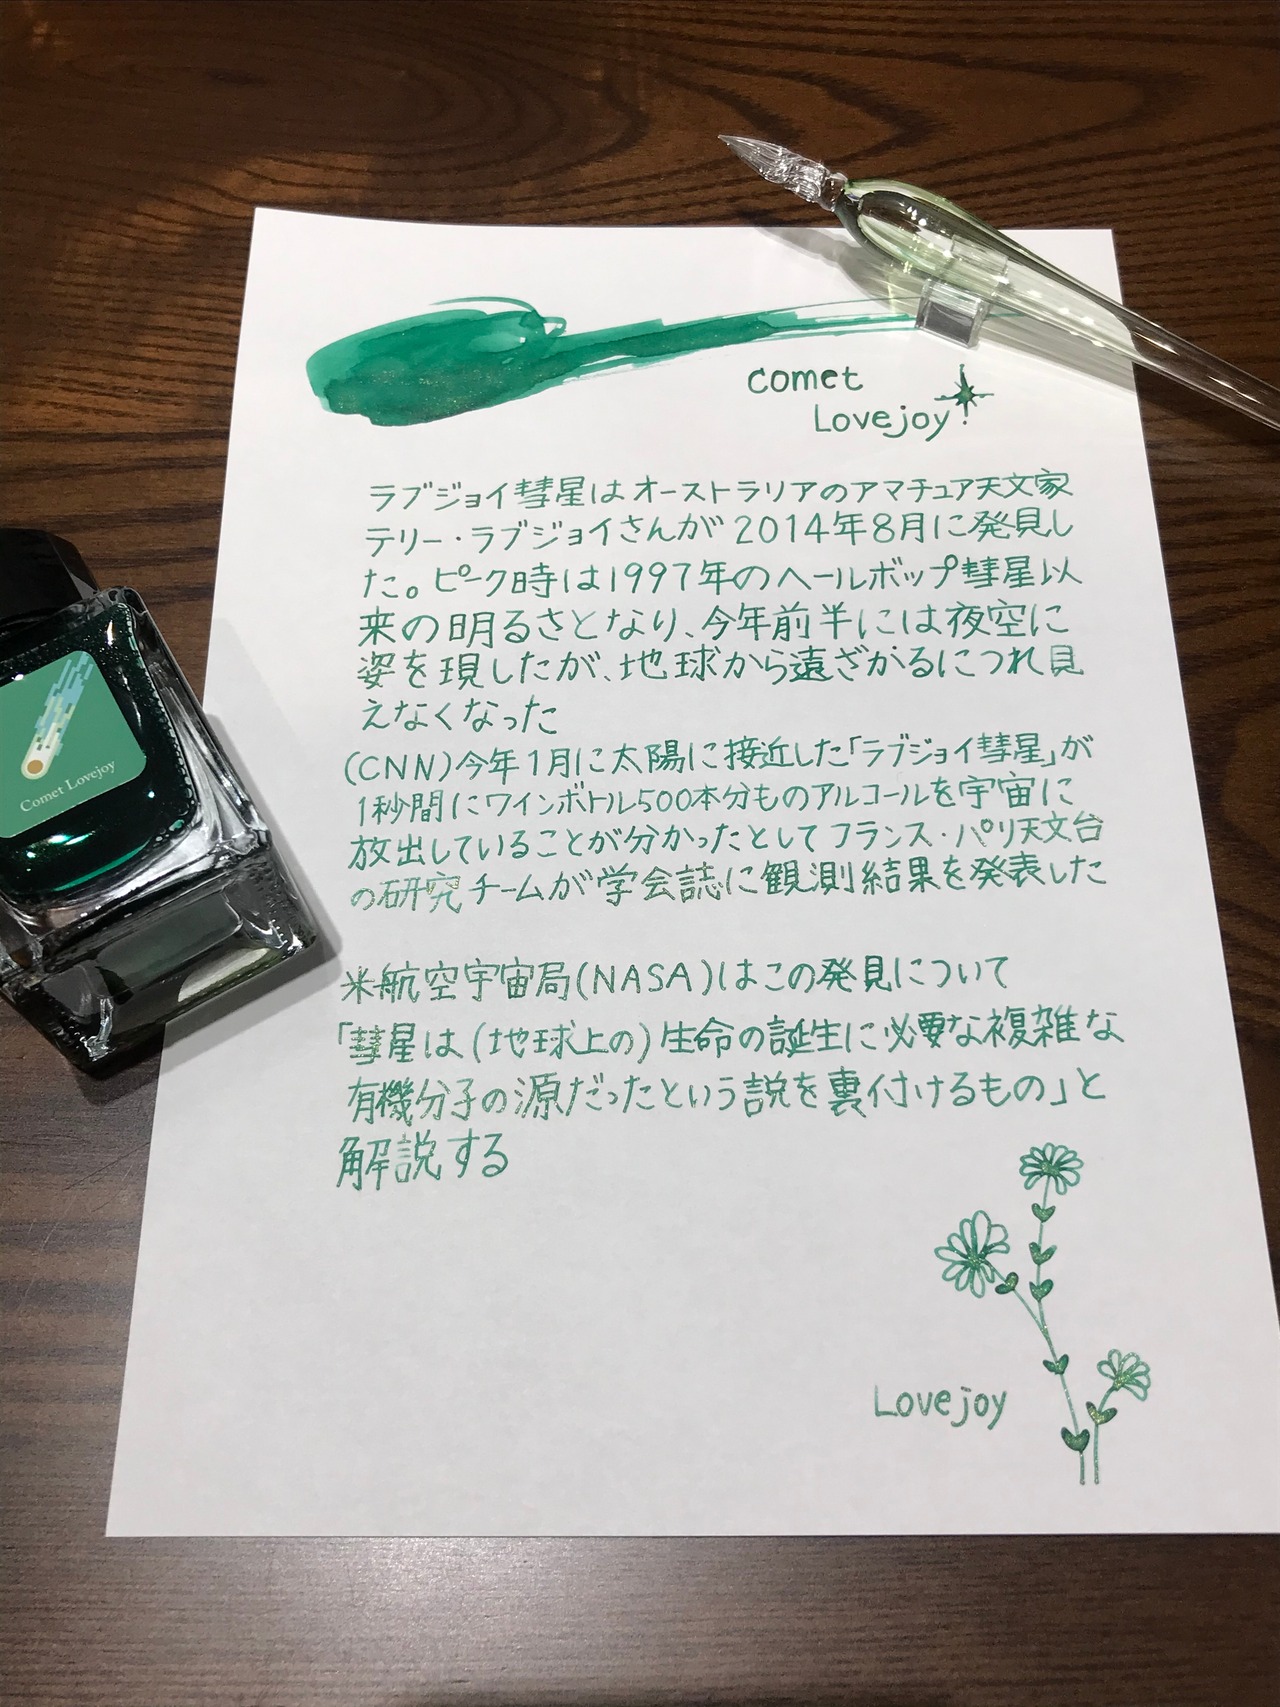 comet
Lovejoy
ラブジョイ彗星はオーストラリアのアマチュア天文家
テリー・ラブジョイさんが2014年8月に発見し
た。ピーク時は1997年のヘールボップ彗星以
来の明るさとなり、今年前半には夜空に
姿を現したが、地球から遠ざかるにつれ見
えなくなった
(CNN)今年1月に太陽に接近した「ラブジョイ彗星」が
1秒間にワインボトル500本分ものアルコールを宇宙に
放出していることが分かったとしてフランス・パリ天文台
の研究チームが学会誌に観測結果を発表した
米航空宇宙局(NASA)はこの発見について
「彗星は(地球上の)生命の誕生に必要な複雑な
有機分子の源だったという説を裏付けるもの」と
解説する
Lovejoy
Comet Lovejoy